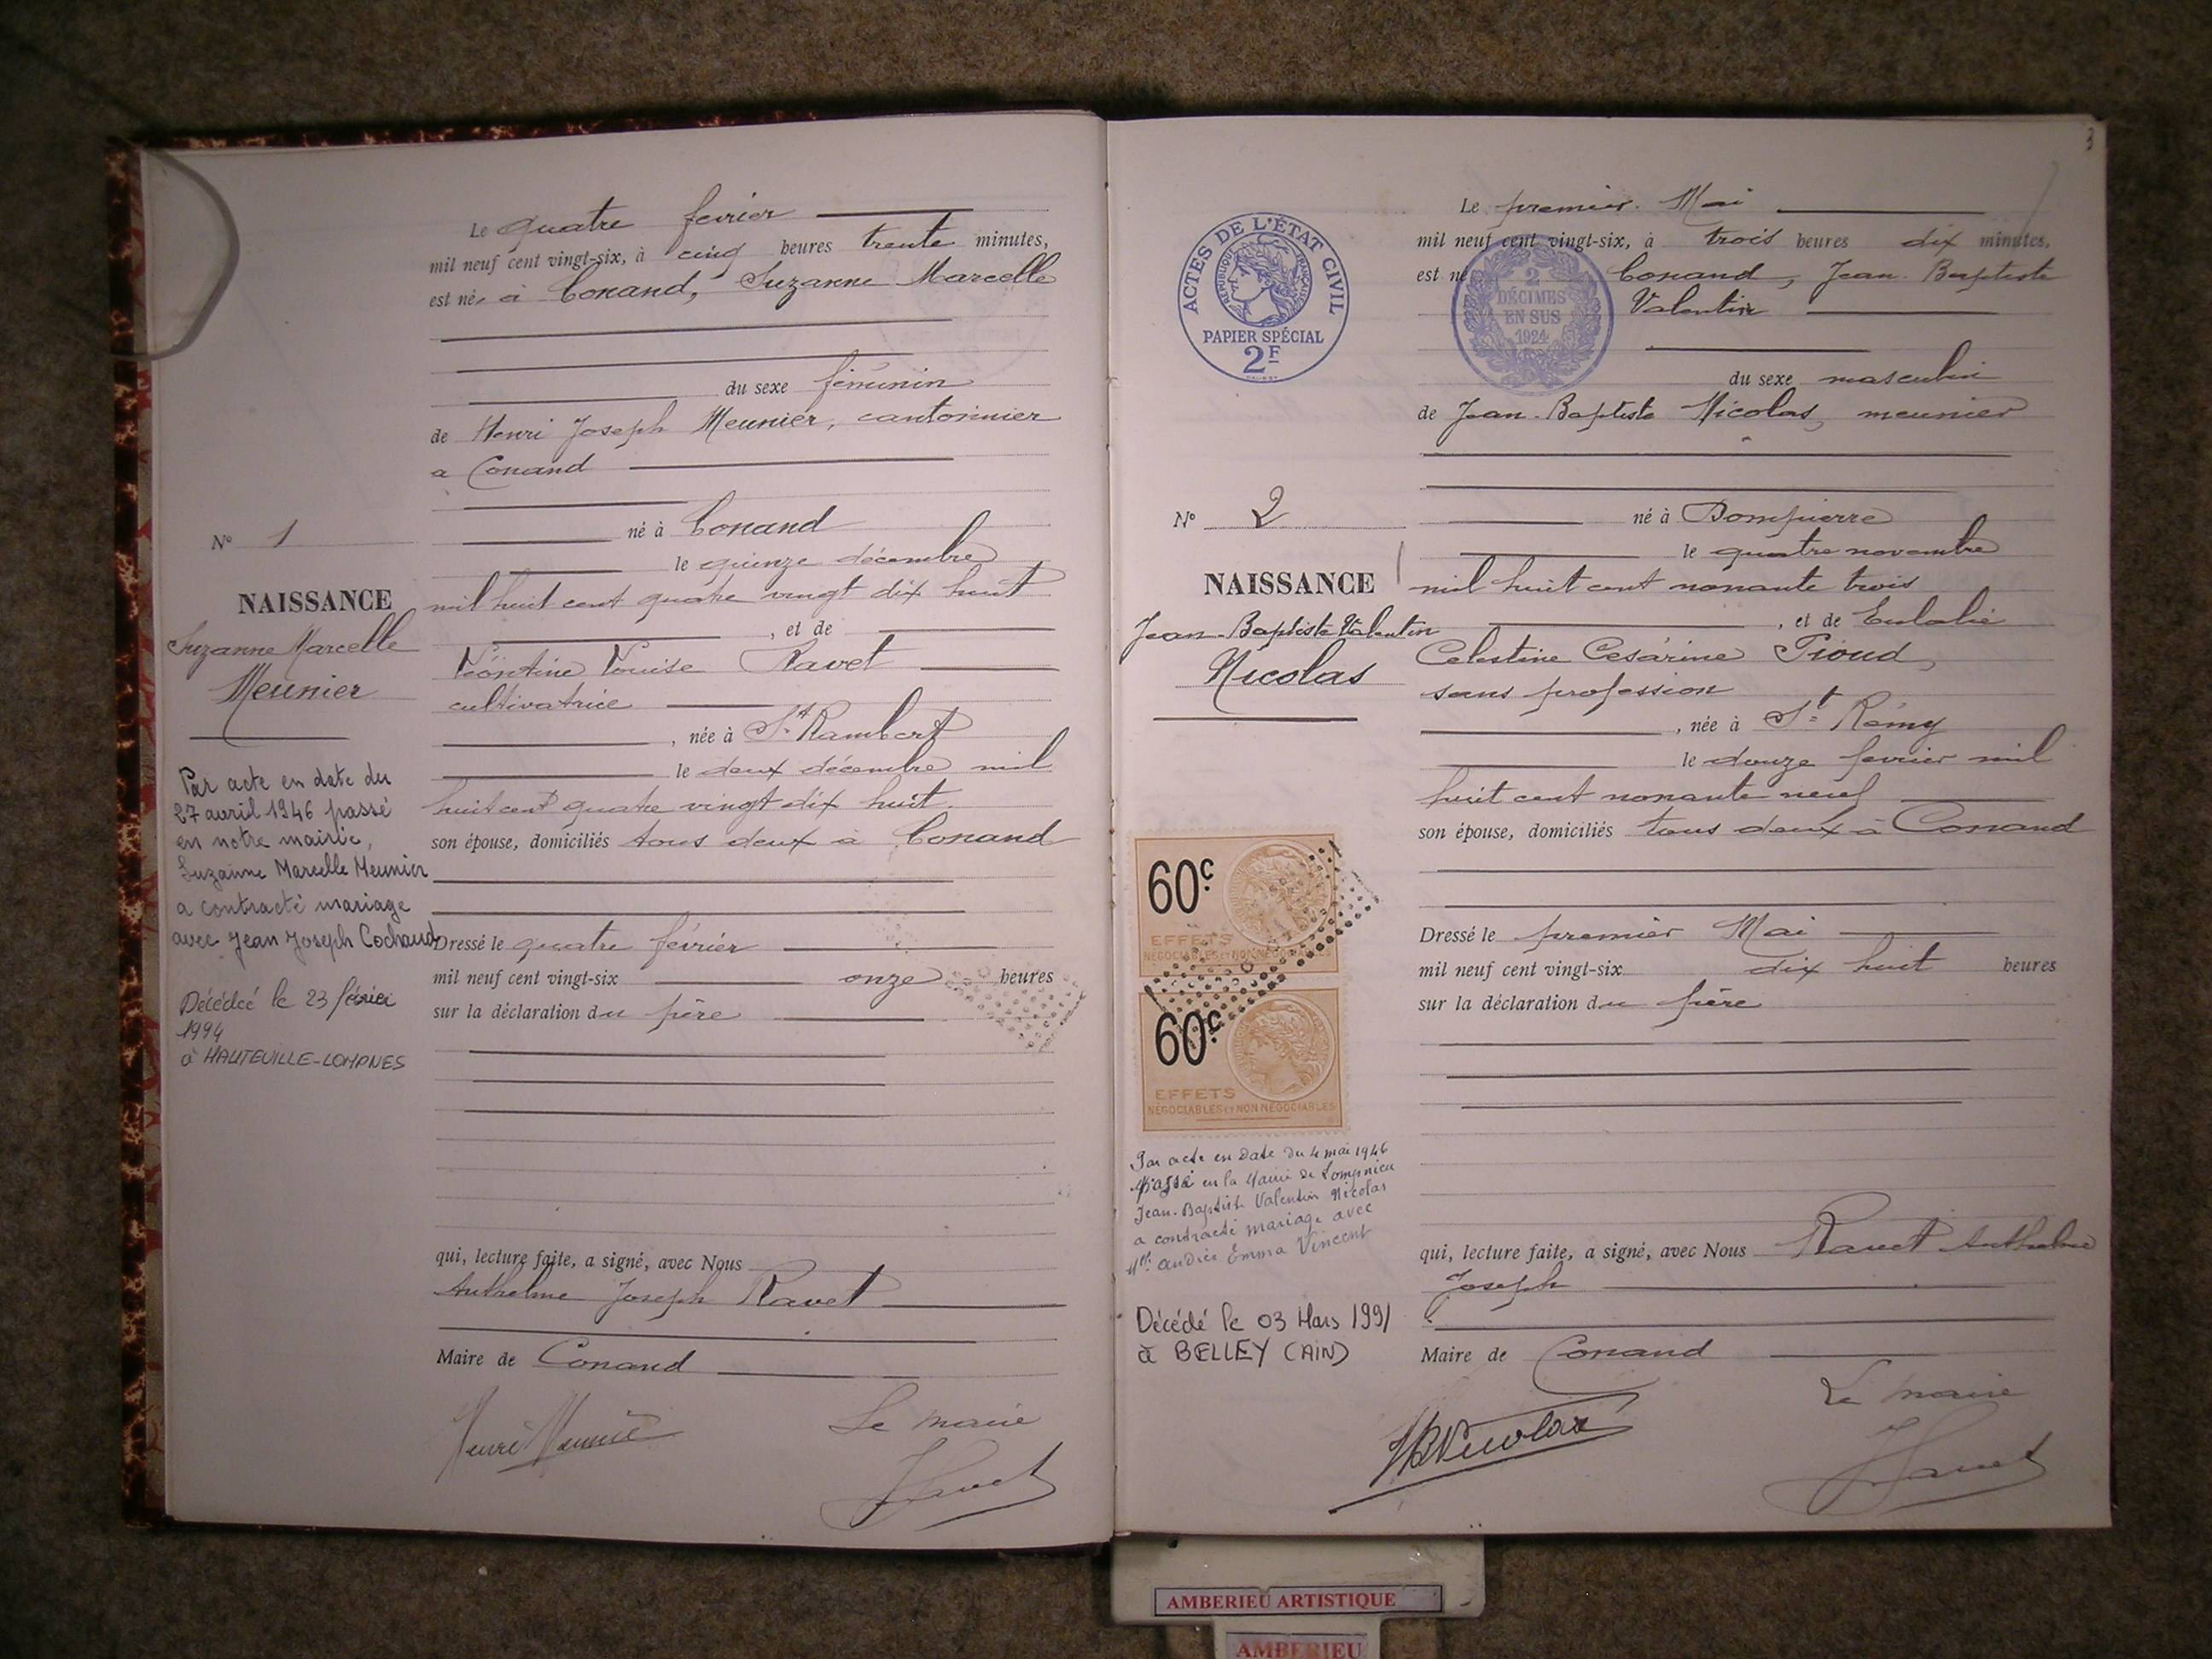 Le quatre fevrier
mil neuf cent vingt-six, à cinq heures trente minutes,
est née à Conand, Suzanne Marcelle
du sexe féminin
de Henri Joseph Meunier, cantonnier
a Conand
né à Conand
le quinze décembre
mil huit cent quatre vingt dix huit
, et de
Léontine Louise Ravet
cultivatrice
, née à St Rambert
le deux décembre mil
huit cent quatre vingt dix huit
son épouse, domiciliés tous deux à Conand
Dressé le quatre février
mil neuf cent vingt-six onze heures
sur la déclaration du père
qui, lecture faite, a signé, avec Nous
Anthelme Joseph Ravet
Maire de Conand
Henri Meunier
Le maire
JRavet
N° 1
NAISSANCE
Suzanne Marcelle
Meunier
Par acte en date du
27 avril 1946 passé
en notre mairie,
Suzanne Marcelle Meunier
a contracté mariage
avec Jean Joseph Cochaud
Décédée le 23 février
1994
à HAUTEVILLE-LOMPNES
3
ACTES DE L'ÉTAT CIVIL
RÉPUBLIQUE FRANÇAISE
PAPIER SPÉCIAL
2F
2
DÉCIMES
EN SUS
1924
Le premier Mai
mil neuf cent vingt-six, à trois heures dix minutes,
est né Conand, Jean Baptiste
Valentin
du sexe masculin
de Jean-Baptiste Nicolas, meunier
né à Dompierre
le quatre novembre
mil huit cent nonante trois
, et de Eulalie
Celestine Cesarine Pioud,
sans profession
, née à St Rémy
le douze fevrier mil
huit cent nonante neuf
son épouse, domiciliés tous deux à Conand
Dressé le premier Mai
mil neuf cent vingt-six dix huit heures
sur la déclaration du père
qui, lecture faite, a signé, avec Nous Ravet Anthelme
Joseph
Maire de Conand
JBNicolas
Le maire
JRavet
N° 2
NAISSANCE
Jean-Baptiste Valentin
Nicolas
60c
EFFETS
NÉGOCIABLES ET NON NÉGOCIABLES
60c
EFFETS
NÉGOCIABLES ET NON NÉGOCIABLES
Par acte en Date du 4 mai 1946
passé en la Mairie de Lompnieu
Jean-Baptiste Valentin Nicolas
a contracté mariage avec
Mlle Andrée Emma Vincent
Décédé le 03 Mars 1991
à BELLEY (AIN)
AMBERIEU ARTISTIQUE
AMBERIEU